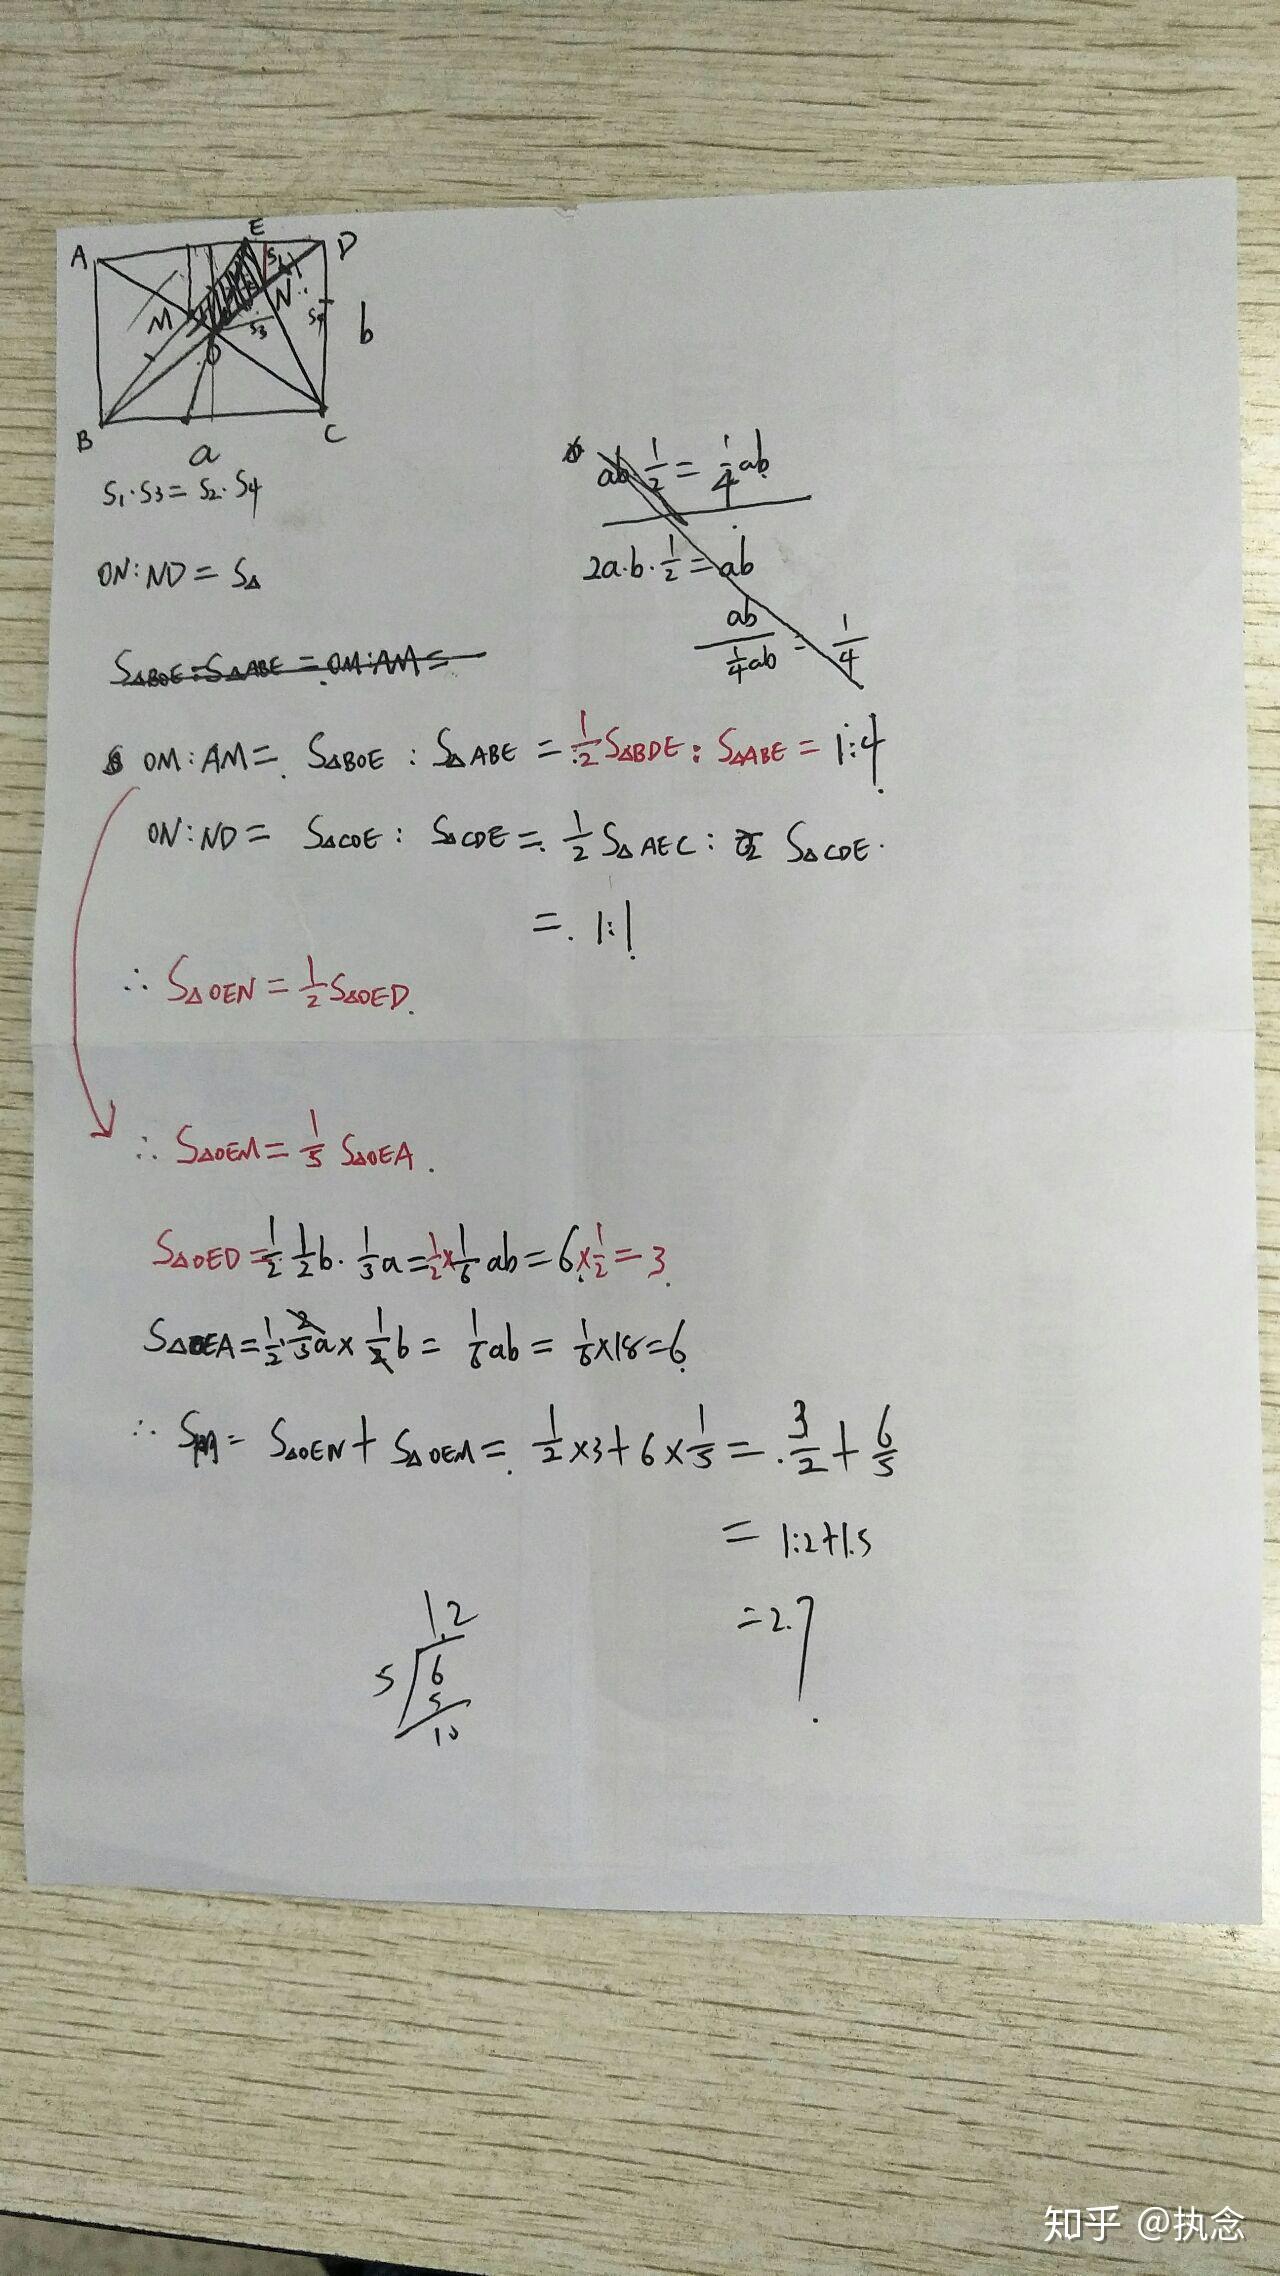 E
A
D
S₁
M
N
S₃
S₄
b
O
B
C
a
S₁·S₃=S₂·S₄
ab·1/2=1/4ab
ON:ND=S△
2a·b·1/2=ab
ab/(1/4ab)=1/4
S△BOE:S△ABE=OM:AM=
OM:AM=S△BOE:S△ABE=1/2S△BDE:S△ABE=1:4
ON:ND=S△COE:S△CDE=1/2S△AEC:S△CDE
=1:1
∴S△OEN=1/2S△OED
∴S△OEM=1/5S△OEA
S△OED=1/2·1/2b·1/3a=1/2×1/6ab=6×1/2=3
S△OEA=1/2·2/3a×1/2b=1/6ab=1/6×18=6
∴S阴=S△OEN+S△OEM=1/2×3+6×1/5=3/2+6/5
=1.2+1.5
=2.7
1.2
5
6
5
10
知乎 @执念